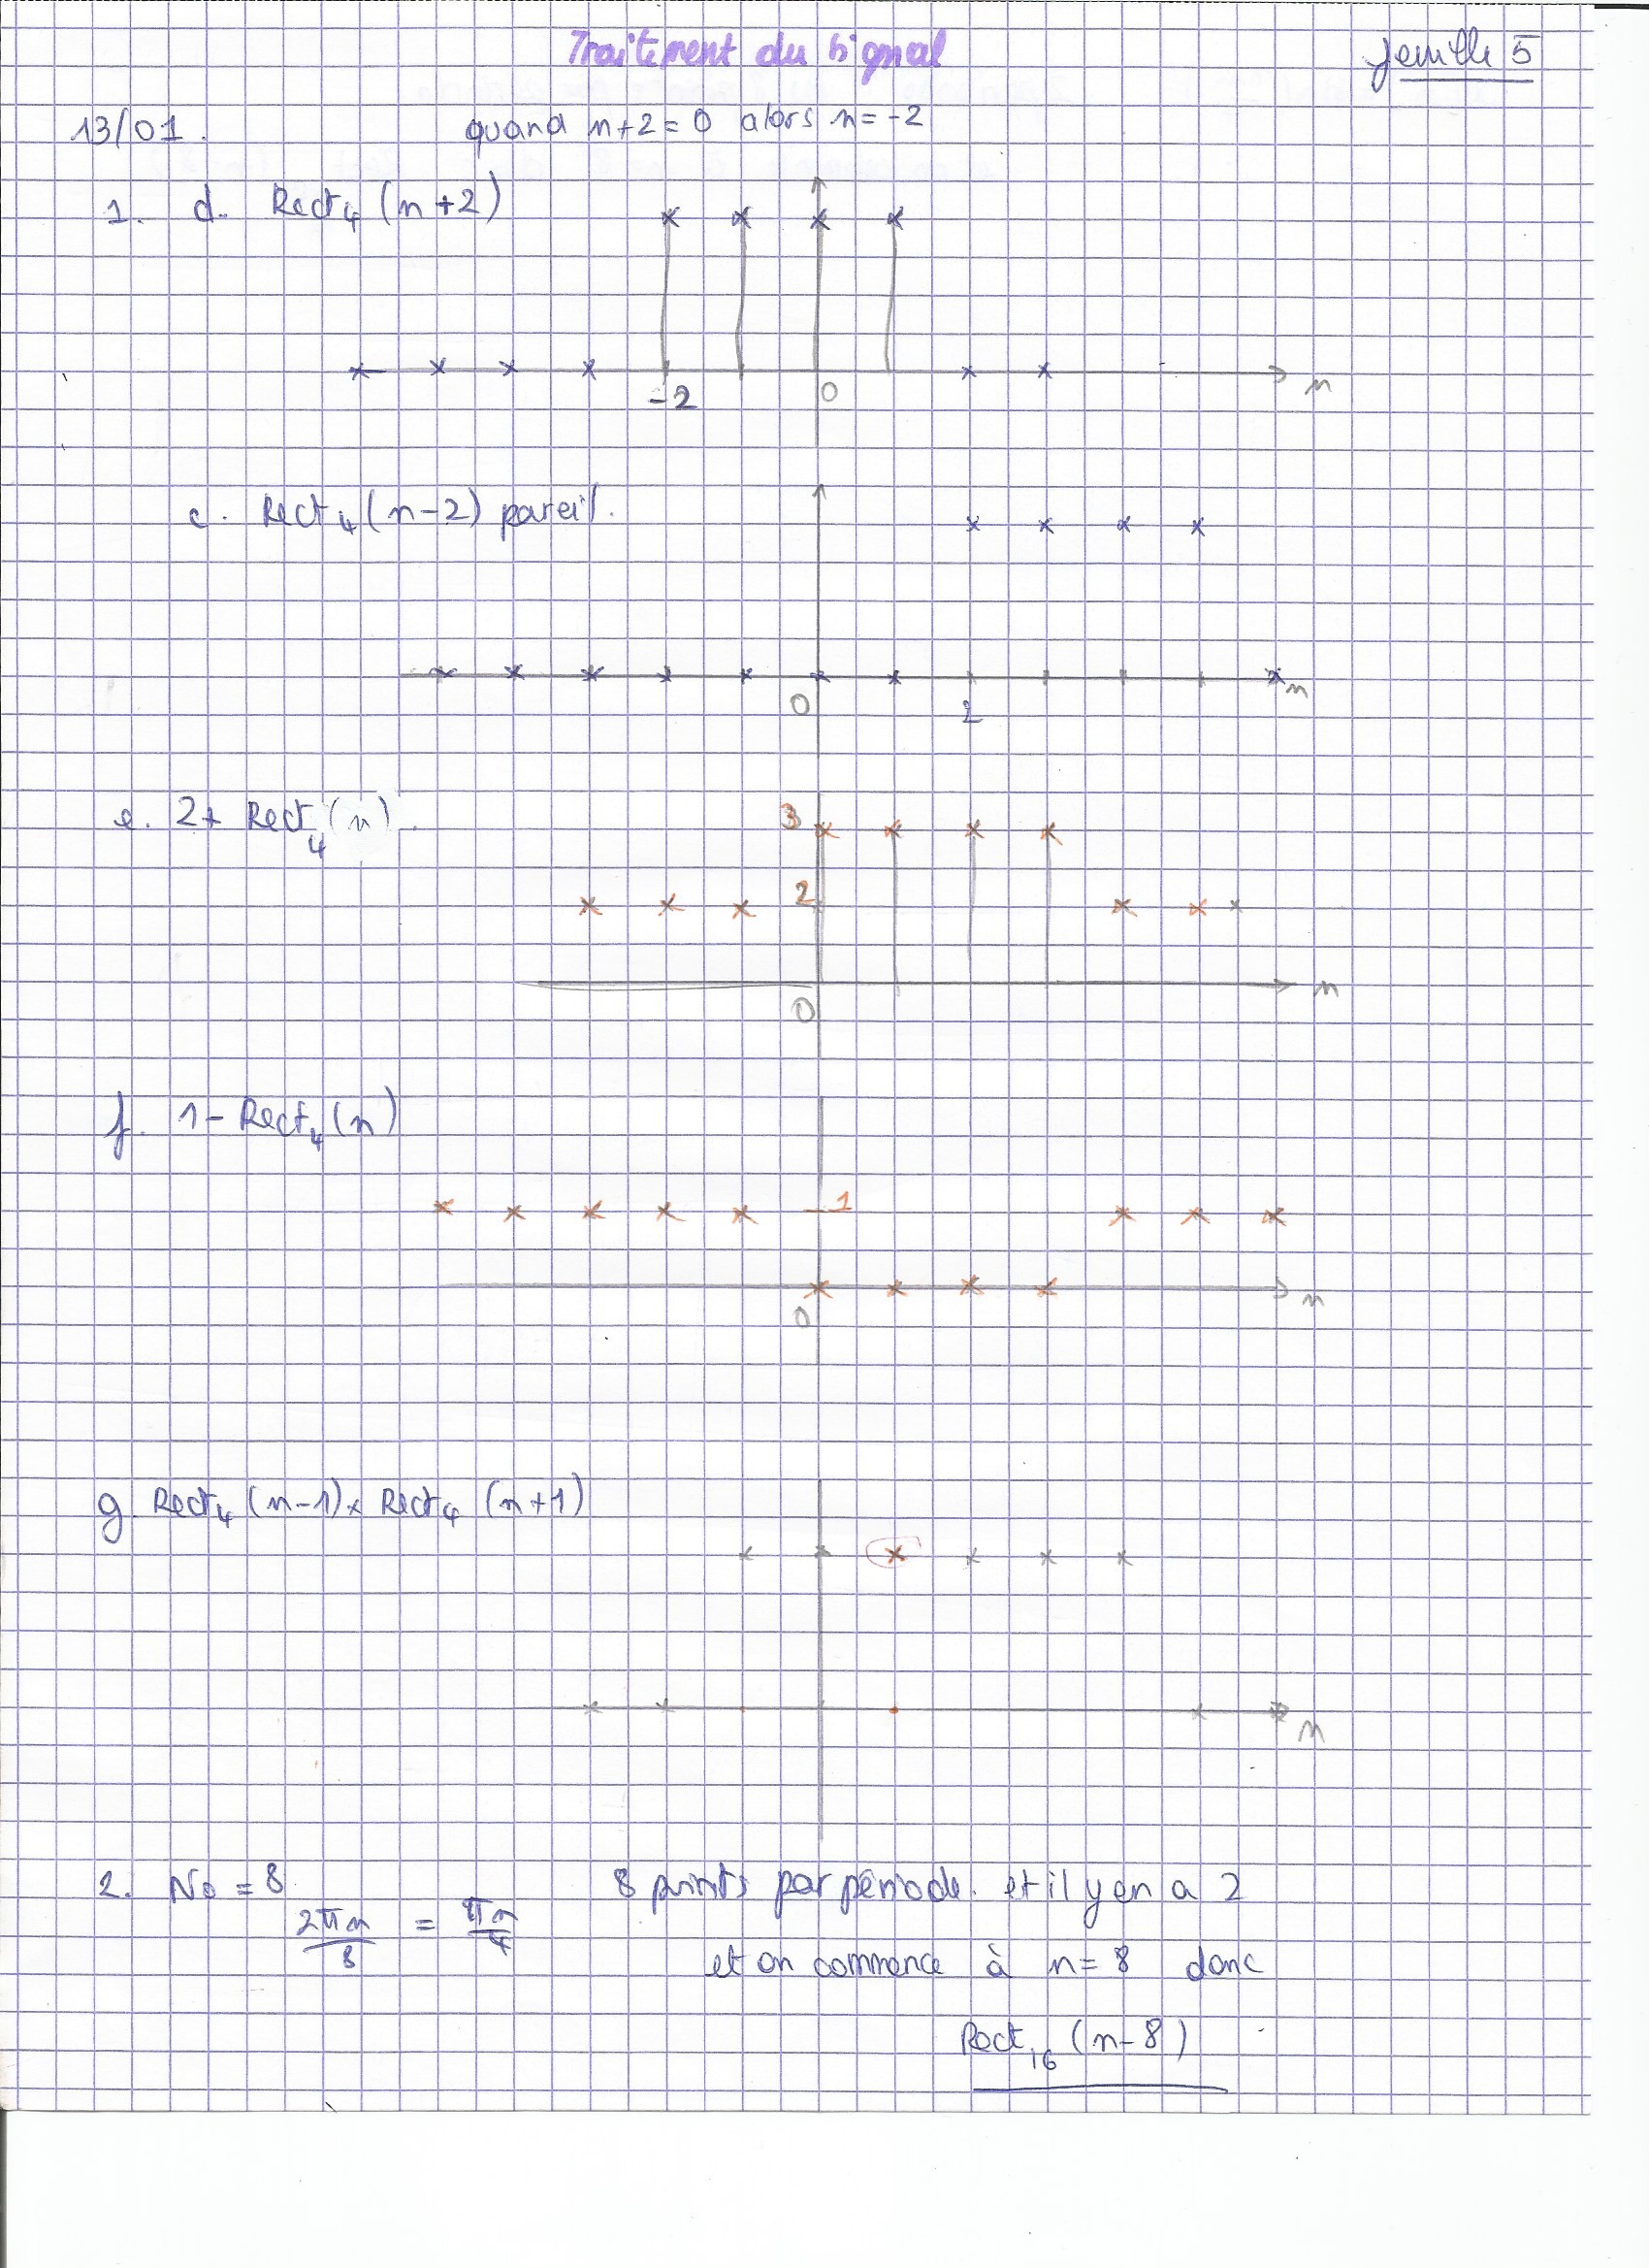 Traitement du signal
feuille 5
13/01.
quand n+2=0 alors n=-2
1. d. Rect₄ (n+2)
-2 0 n
c. Rect₄ (n-2) pareil.
0 2 n
e. 2+ Rect₄ (n).
3
2
0 n
f. 1- Rect₄ (n)
1
0 n
g. Rect₄ (n-1) x Rect₄ (n+1)
n
2. No = 8
8 points par période. et il y en a 2
2πn/8 = πn/4
et on commence à n=8 donc
Rect₁₆ (n-8)